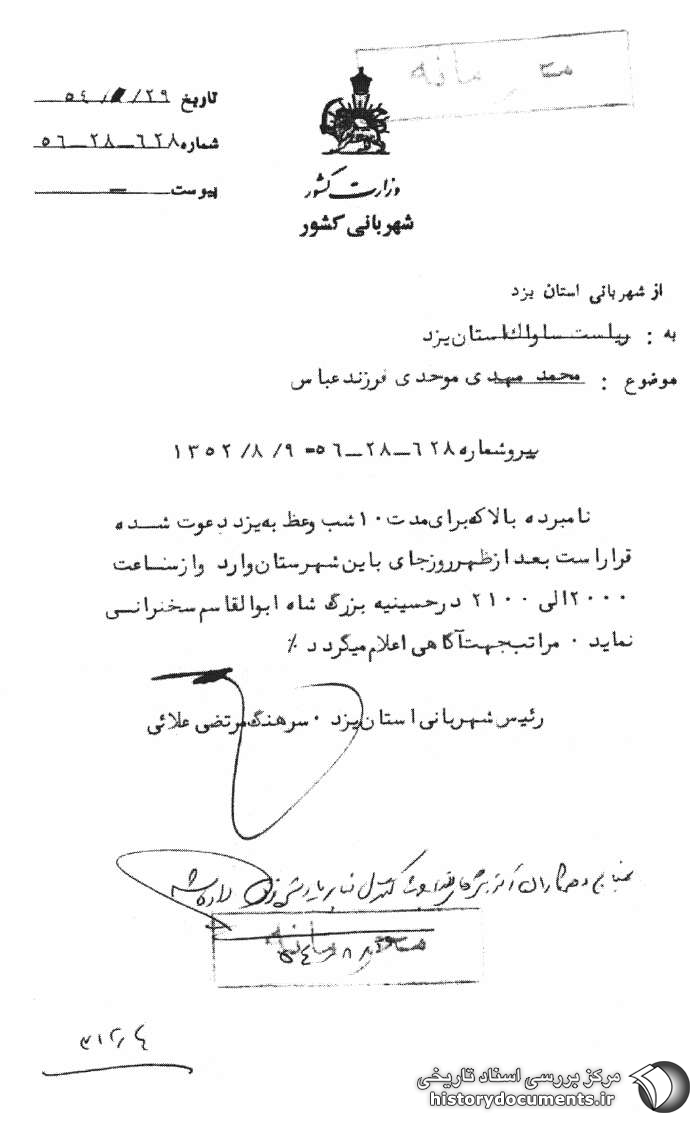 محرمانه
تاریخ ۲۹/ /۵۴
شماره ۶۲۸ــ۲۸ــ۵۶
پیوست ــ
وزارت کشور
شهربانی کشور
از شهربانی استان یزد
به : ریاست ساواک استان یزد
موضوع : محمد مهدی موحدی فرزند عباس
پیرو شماره ۶۲۸ــ۲۸ــ۵۶ــ ۹/ ۸/ ۱۳۵۲
نامبرده بالا که برای مدت ۱۰ شب وعظ به یزد دعوت شده
قرار است بعد از ظهر روز جای باین شهرستان وارد و از ساعت
۲۰۰۰ الی ۲۱۰۰ در حسینیه بزرگ شاه ابوالقاسم سخنرانی
نماید ۰ مراتب جهت آگاهی اعلام میگردد ٪
رئیس شهربانی استان یزد ۰ سرهنگ مرتضی علائی
محرمانه
۳۱۲٫۴
مرکز بررسی اسناد تاریخی
historydocuments.ir